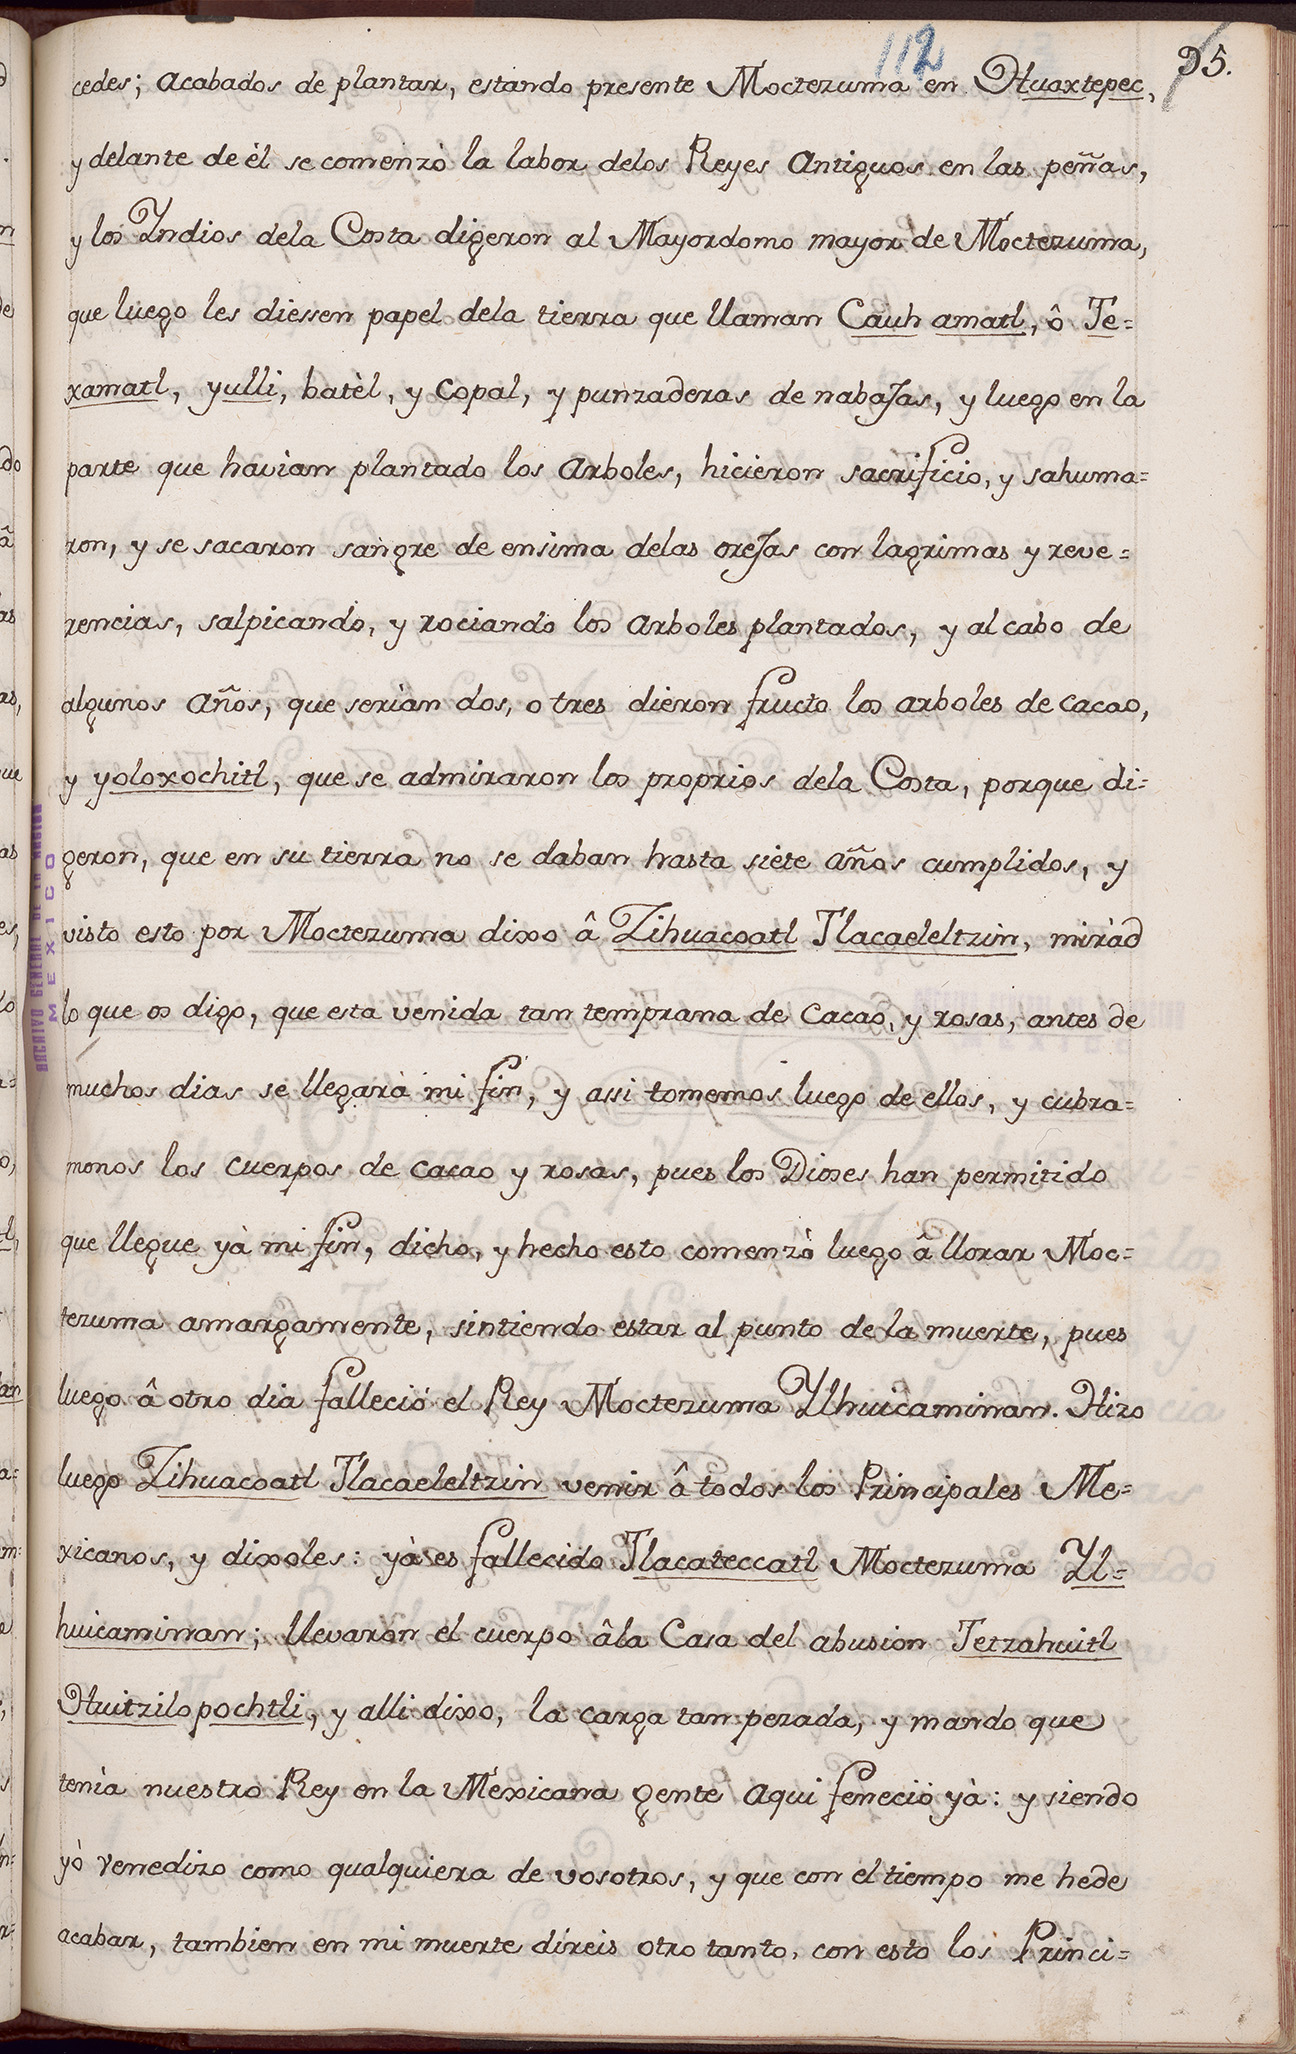 112
95.
cedes; acabados de plantar, estando presente Moctezuma en Huaxtepec,
y delante de èl se comenzò la labor delos Reyes Antiguos en las peñas,
y los Yndios dela Costa digeron al Mayordomo mayor de Moctezuma,
que luego les diessen papel dela tierra que llaman Cauh amatl, ô Te=
xamatl, yulli, batèl, y Copal, y punzaderas de nabaJas, y luego en la
parte que havian plantado los Arboles, hicieron sacrificio, y sahuma=
ron, y se sacaron sangre de ensima delas oreJas con lagrimas y reve=
rencias, salpicando, y rociando los arboles plantados, y al cabo de
algunos años, que serian dos, o tres dieron fructo los arboles de cacao,
y yoloxochitl, que se admiraron los proprios dela Costa, porque di=
geron, que en su tierra no se daban hasta siete años cumplidos, y
visto esto por Moctezuma dixo â Zihuacoatl Tlacaeleltzin, miràd
lo que os digo, que esta venida tan temprana de Cacao, y rosas, antes de
muchos dias se llegarà mi fin, y assi tomemos luego de ellos, y cubra=
monos los cuerpos de cacao y rosas, pues los Dioses han permitido
que llegue yà mi fin, dicho, y hecho esto comenzò luego â llorar Moc=
tezuma amargamente, sintiendo estar al punto de la muerte, pues
luego â otro dia falleciò el Rey Moctezuma Ylhuicaminan. Hizo
luego Zihuacoatl Tlacaeleltzin venir â todos los Principales Me=
xicanos, y dixoles: yà es fallecido Tlacateccatl Moctezuma Yl=
huicaminan; llevaron el cuerpo âla Casa del abusion Tetzahuitl
Huitzilopochtli, y alli dixo, la carga tan pezada, y mando que
tenìa nuestro Rey en la Mexicana gente aqui feneciò yà: y siendo
yò venedizo como qualquiera de vosotros, y que con el tiempo me hede
acabar, tambien en mi muerte direis otro tanto, con esto los Princi=
ARCHIVO GENERAL DE LA NACION
MEXICO